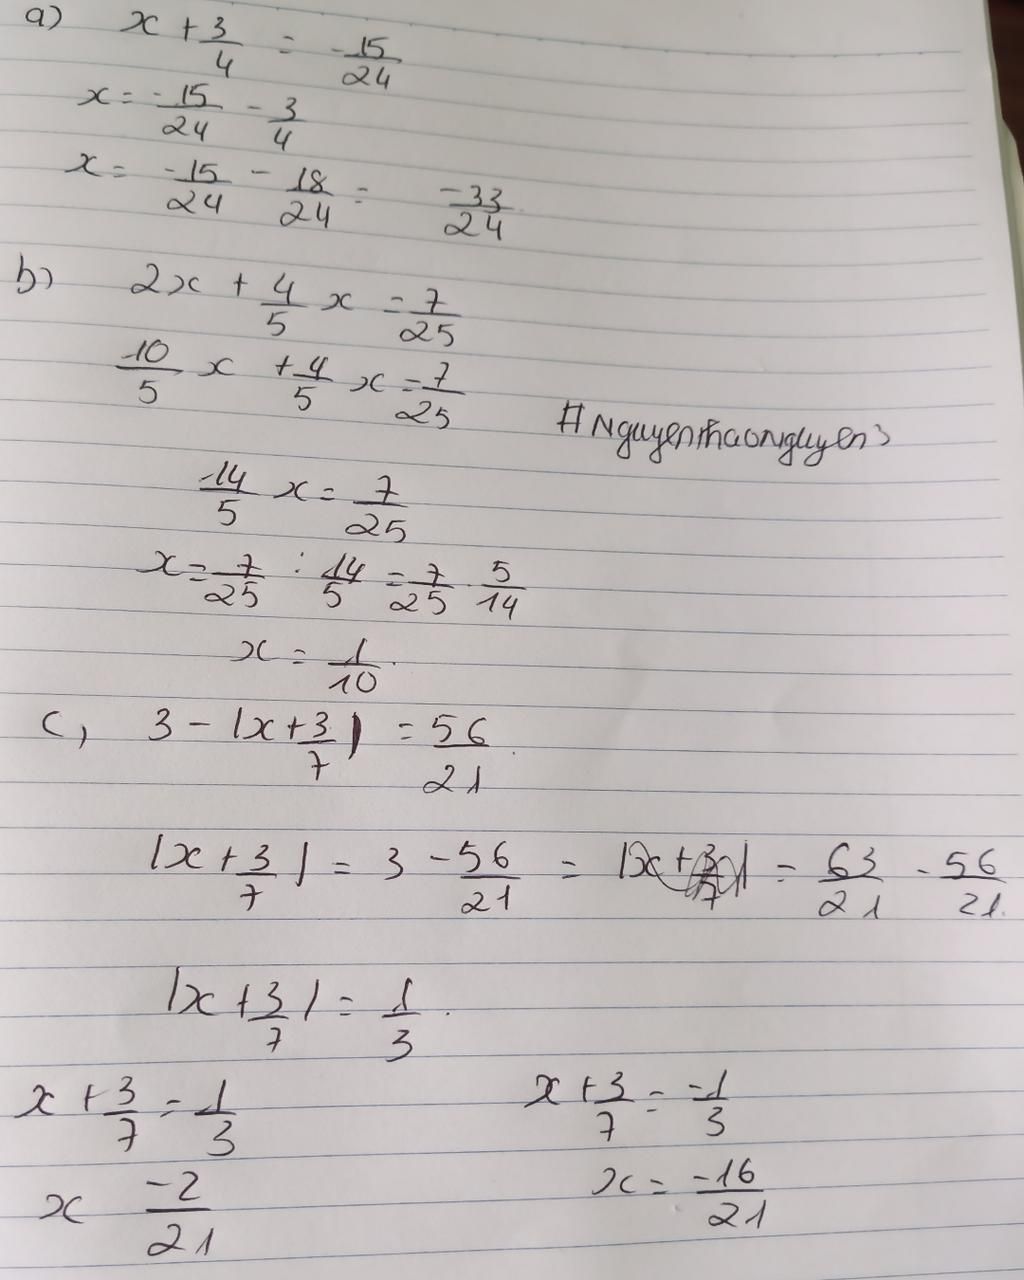 a) x + 3/4 = -15/24
x = -15/24 - 3/4
x = -15/24 - 18/24 = -33/24
b) 2x + 4/5 x = 7/25
10/5 x + 4/5 x = 7/25
#Nguyenthaonguyen3
14/5 x = 7/25
x = 7/25 : 14/5 = 7/25 . 5/14
x = 1/10.
c, 3 - |x + 3/7| = 56/21.
|x + 3/7| = 3 - 56/21 = |x + 3/7| = 63/21 - 56/21.
|x + 3/7| = 1/3.
x + 3/7 = 1/3 x + 3/7 = -1/3
x -2/21 x = -16/21